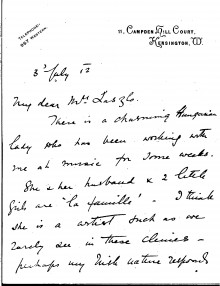 TELEPHONE:
997 WESTERN.
11, CAMPDEN HILL COURT,
KENSINGTON, W.
3rd July 12
My dear Mrs Laszlo
There is a charming Hungarian
lady who has been working with
me at music for some weeks.
She & her husband & 2 little
girls are "la famille" - I think
she is a artist such as we
rarely see in these climes -
perhaps my Irish nature responds